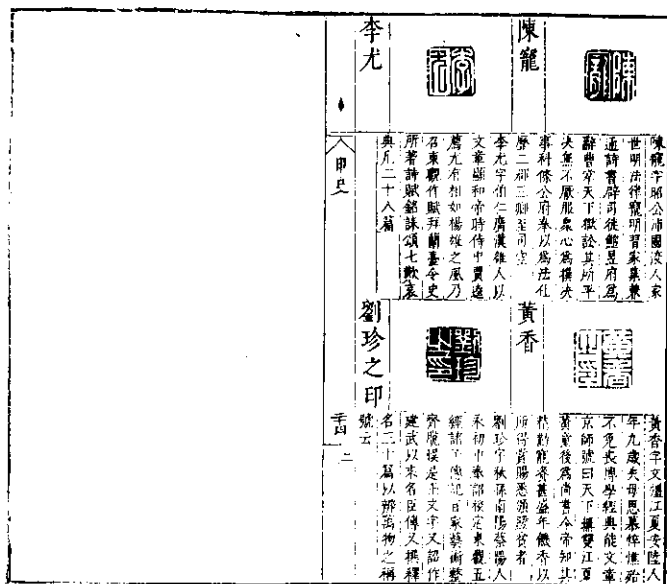 陳寵
陳寵
陳寵字昭公沛國洨人家
世明法律寵明習家業兼
通詩書辟司徒鮑昱府爲
辭曹掌天下獄訟其所平
決無不厭服衆心爲撰決
事科條公府奉以爲法仕
歷二郡三卿至司空
李尤
李尤
李尤字伯仁廣漢雒人以
文章顯和帝時侍中賈逵
薦尤有相如楊雄之風乃
召東觀作賦拜蘭臺令史
所著詩賦銘誄頌七歎哀
典凡二十八篇
黃香之印
黃香
黃香字文彊江夏安陸人
年九歲失母思慕憔悴殆
不免喪博學經典能文章
京師號曰天下無雙江夏
黃童後爲尚書令帝知其
精勤寵眷甚盛年饑香以
所得賞賜悉頒贍貧者
劉珍之印
劉珍之印
劉珍字秋孫南陽蔡陽人
永初中奉詔校定東觀五
經諸子傳記百家藝術整
齊脫誤是正文字又詔作
建武以來名臣傳又撰釋
名三十篇以辨萬物之稱
號云
印史
二